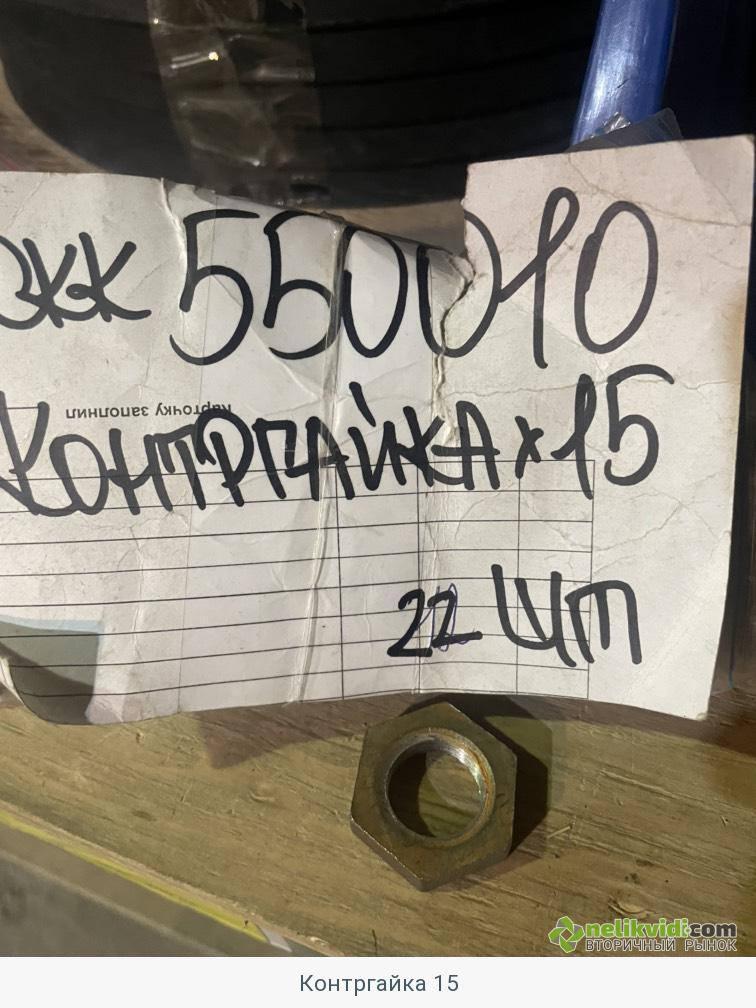 ЗКК 550010
карточку заполнил
КОНТРГАЙКА х 15
22 шт
nelikvidi.com
ВТОРИЧНЫЙ РЫНОК
Контргайка 15